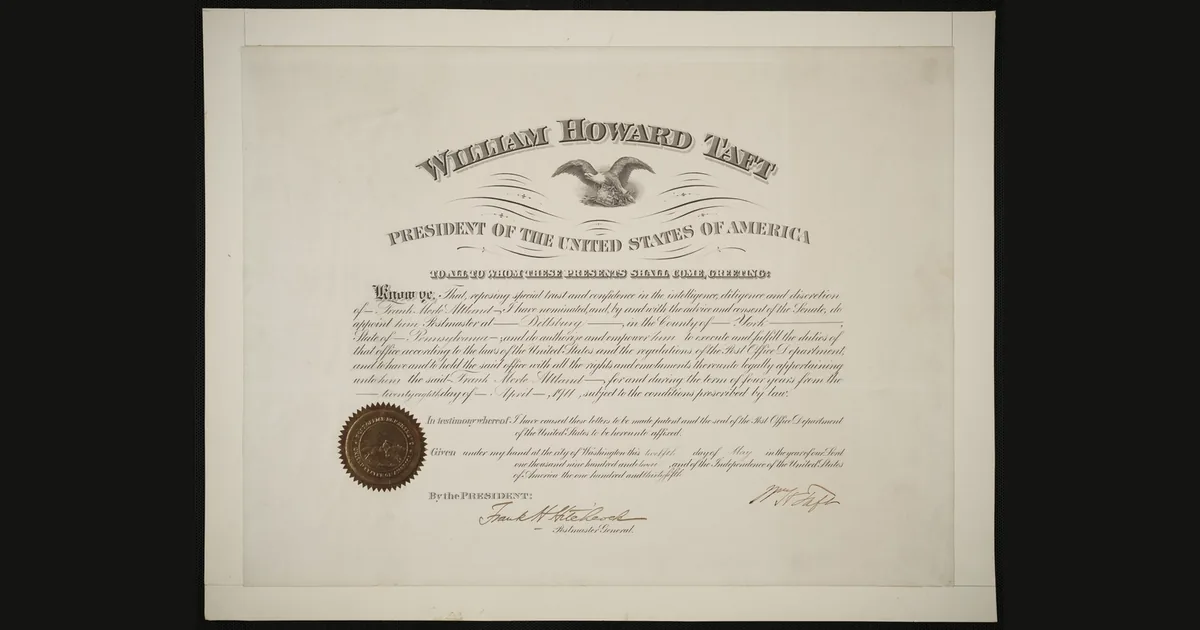 WILLIAM HOWARD TAFT
PRESIDENT OF THE UNITED STATES OF AMERICA
TO ALL TO WHOM THESE PRESENTS SHALL COME, GREETING:
Know ye, That, reposing special trust and confidence in the intelligence, diligence and discretion
of Frank Mede Altland, I have nominated, and, by and with the advice and consent of the Senate, do
appoint him Postmaster at , in the County of York ,
State of Pennsylvania , and do authorize and empower him to execute and fulfill the duties of
that office according to the laws of the United States and the regulations of the Post Office Department,
and to have and to hold the said office with all the rights and emoluments thereunto legally appertaining
unto him the said Frank Mede Altland , for and during the term of four years from the
twenty eighth day of April , 1911 , subject to the conditions prescribed by law.
In testimony whereof I have caused these letters to be made patent and the seal of the Post Office Department
of the United States to be hereunto affixed.
Given under my hand at the city of Washington this twelfth day of May in the year of our Lord
one thousand nine hundred and eleven , and of the Independence of the United States
of America the one hundred and thirty fifth.
By the PRESIDENT:
Wm H Taft
Frank H Hitchcock
Postmaster General.